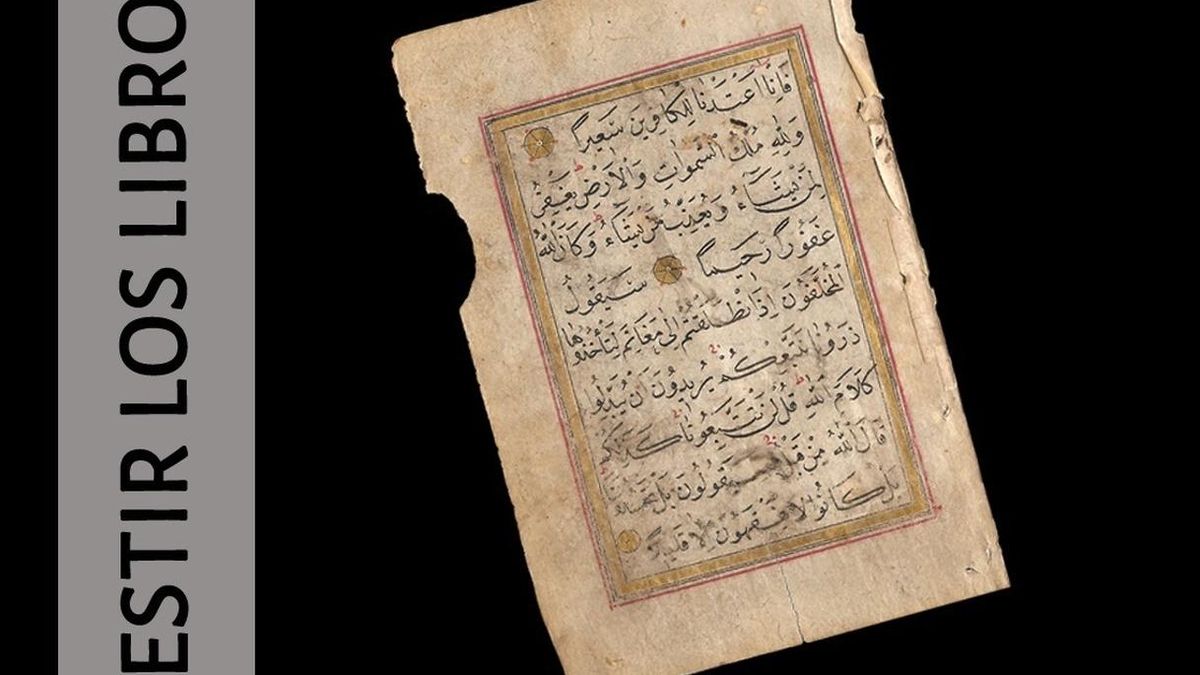 ESTIR LOS LIBRO
فَإِنَّا أَعْتَدْنَا لِلْكَافِرِينَ سَعِيرًا
وَلِلّٰهِ مُلْكُ السَّمٰوَاتِ وَالْاَرْضِ يَغْفِرُ
لِمَنْ يَشَاءُ وَيُعَذِّبُ مَنْ يَشَاءُ وَكَانَ اللّٰهُ
غَفُورًا رَحِيمًا سَيَقُولُ
الْمُخَلَّفُونَ اِذَا انْطَلَقْتُمْ اِلٰى مَغَانِمَ لِتَأْخُذُوهَا
ذَرُونَا نَتَّبِعْكُمْ يُرِيدُونَ اَنْ يُبَدِّلُوا
كَلَامَ اللّٰهِ قُلْ لَنْ تَتَّبِعُونَا كَذٰلِكُمْ
قَالَ اللّٰهُ مِنْ قَبْلُ فَسَيَقُولُونَ بَلْ تَحْسُدُونَنَا
بَلْ كَانُوا لَا يَفْقَهُونَ اِلَّا قَلِيلًا